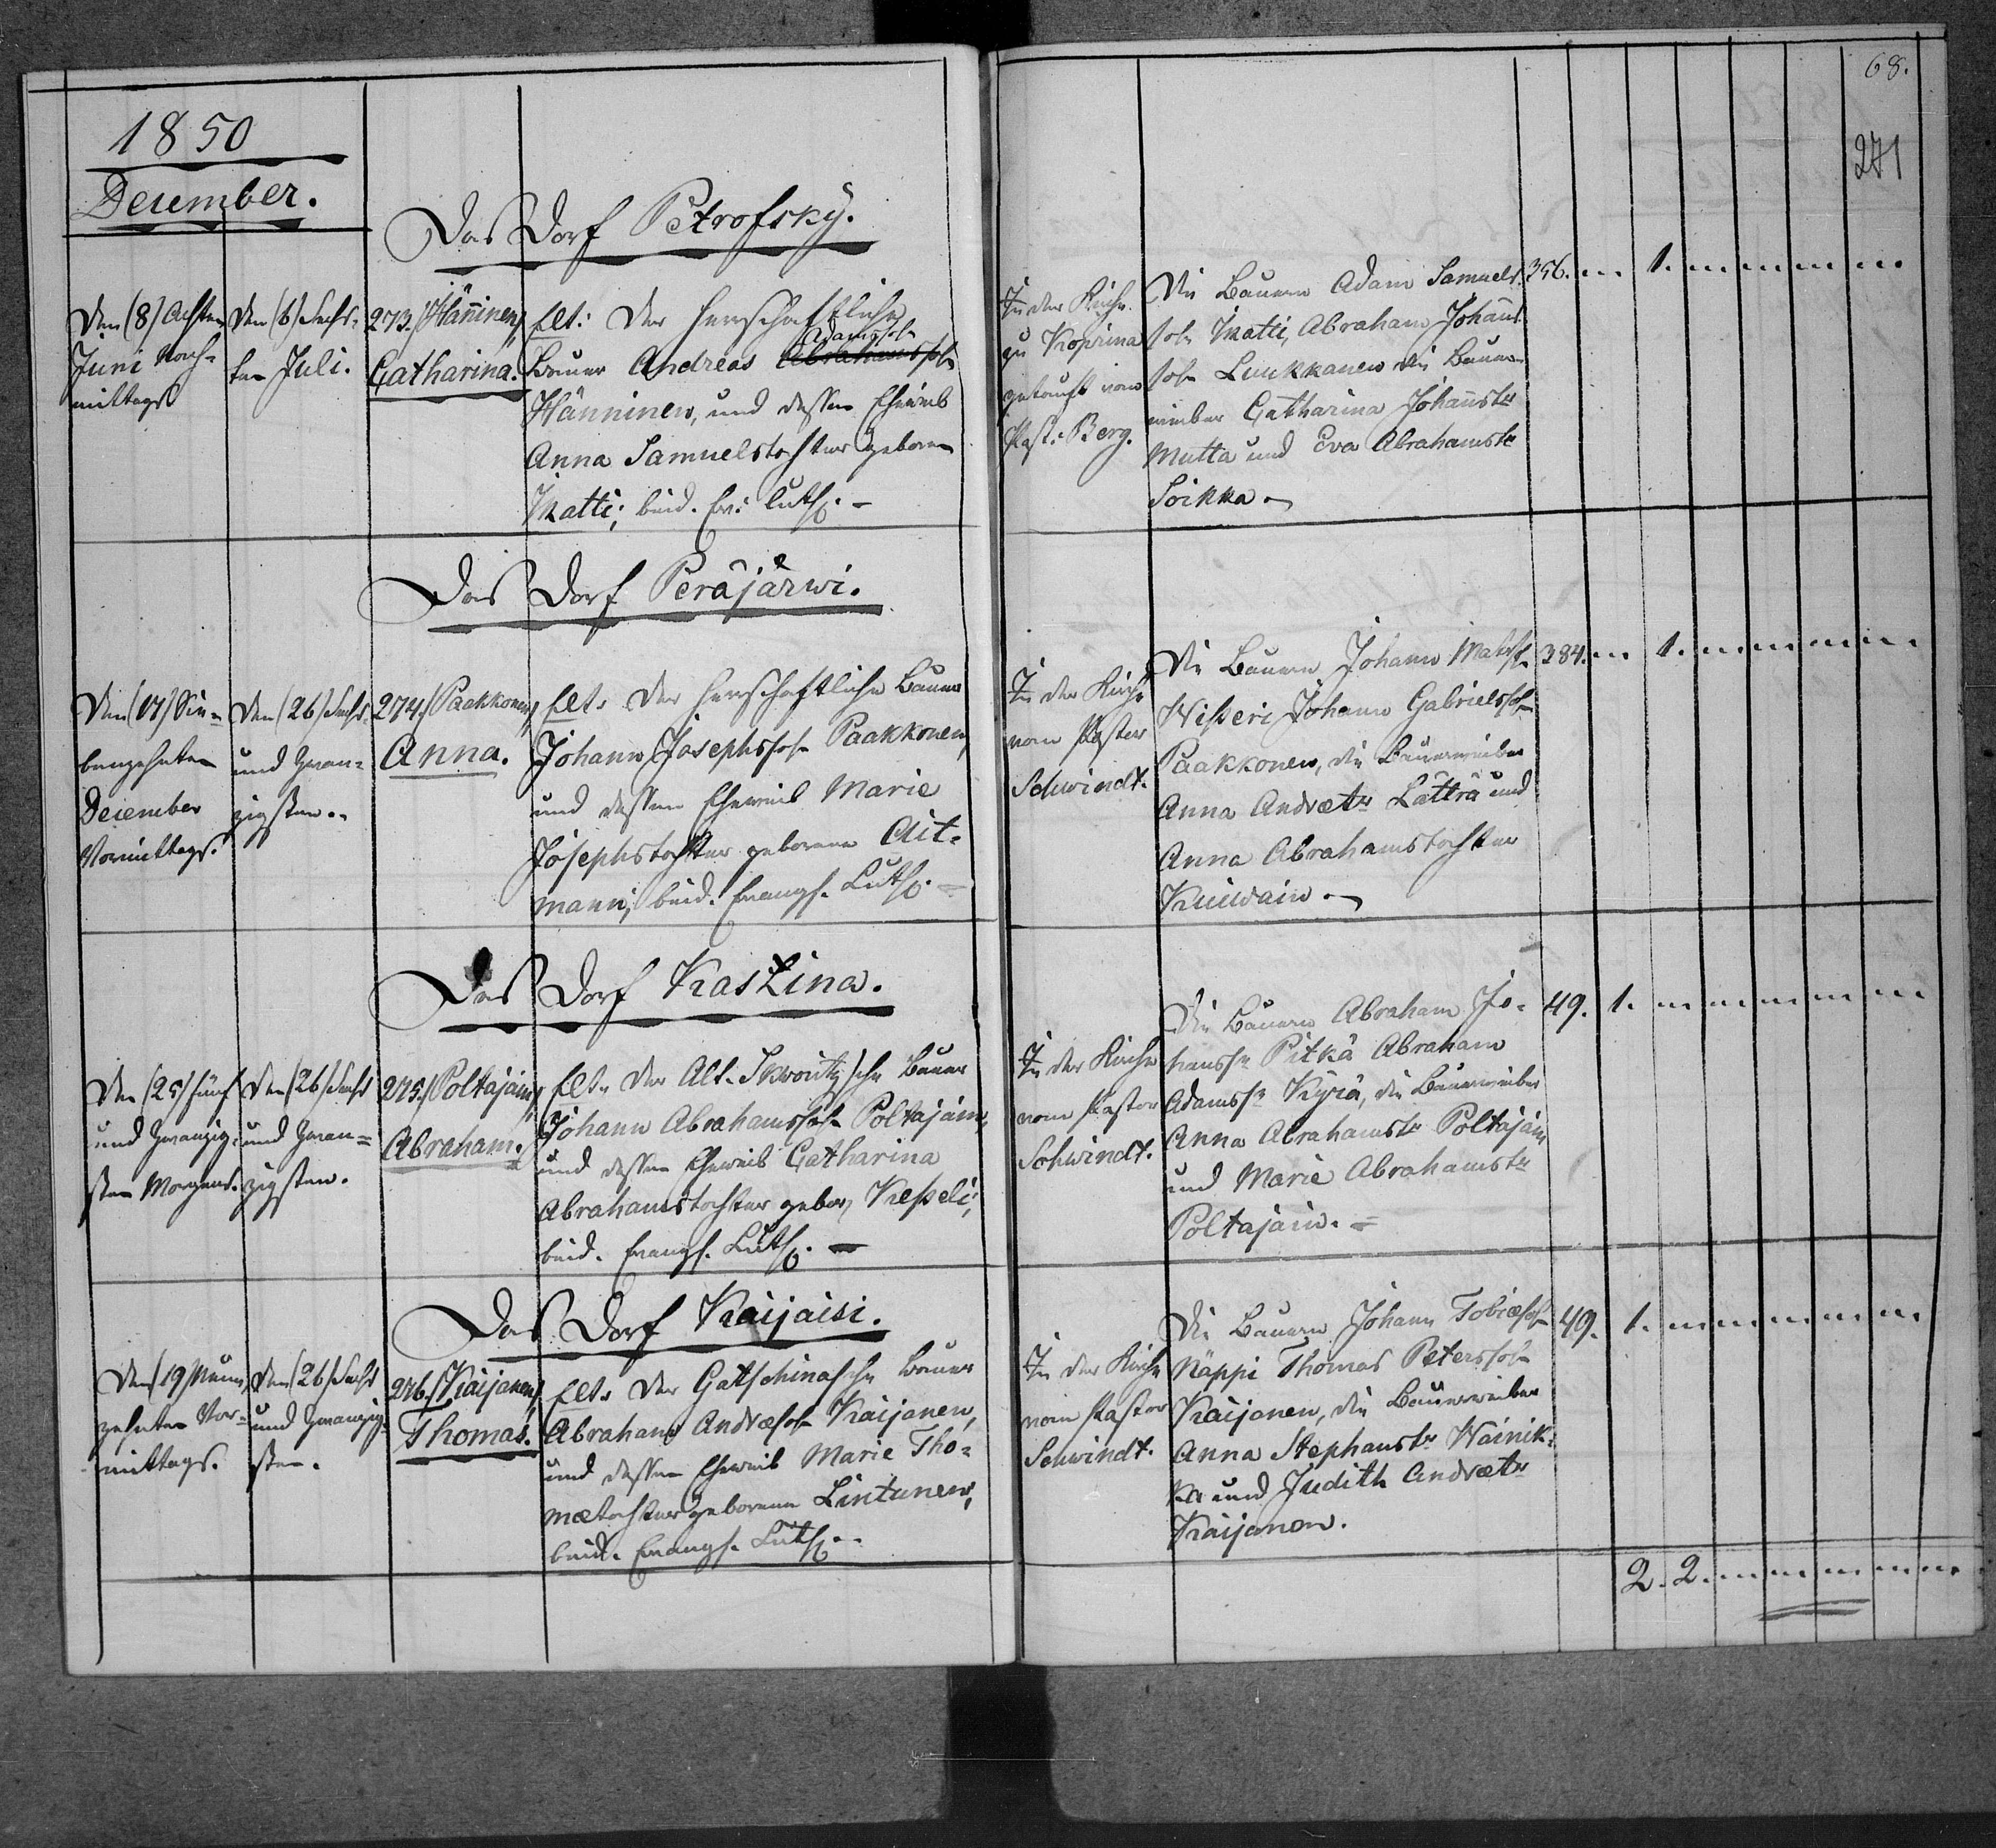 68.
271
1850
December.
Das Dorf Petrofsky.
Den (8) Achten
Juni Nach-
mittags
Den (6) Sechs-
ten Juli.
273. Hänninen,
Catharina.
Elt: Der herrschaftliche
Adamssohn
Bauer Andreas Abrahamssohn
Hänninen, und dessen Eheweib
Anna Samuelstochter geboren
Matti; beid. Ev: Luth. -
In der Kirche
zu Koprina
getauft vom
Past: Berg.
Die Bauern Adam Samuels-
sohn Matti, Abraham Johans-
sohn Luukkanen die Bauer-
weiber Catharina Johannstr
Mutta und Eva Abrahamstr
Soikka.
356. 1.
Das Dorf Peräjärwi.
Den (17) Sie-
benzehnten
December
Vormittags.
Den (26) Sechs
und Zwan-
zigsten.
274. Paakkonen,
Anna.
Elt. Der herrschaftliche Bauer
Johann Josephssohn Paakkonen,
und dessen Eheweib Marie
Josephstochter geborene Ait-
mann; beid. Evangl. Luth.
In der Kirche
vom Pastor
Schwindt.
Die Bauern Johann Matss.
Wisseri Johann Gabrielssohn
Paakkonen, die Bauerweiber
Anna Andræetr Lätträ und
Anna Abrahamstochter
384. 1.
Das Dorf Kaskina.
Den (25) fünf
und Zwanzig-
sten Morgens.
Den (26) Sechs
und Zwan-
zigsten.
275. Poltajain,
Abraham.
Elt. Der Alt. Skworitzsche Bauer
Johann Abrahamssohn Poltajain,
und dessen Eheweib Catharina
Abrahamstochter gebor, Kesseli;
beid. Evangl. Luth.
In der Kirche
vom Pastor
Schwindt.
Die Bauern Abraham Jo-
hanssn Pitkä Abraham
Adamssn Kyriä, die Bauerweiber
Anna Abrahamstr Poltajain
und Marie Abrahamstr
Poltajain.
49. 1.
Das Dorf Kaijaisi.
Den (19) Neun-
zehnten Vor-
mittags.
Den (26) Sechs
und Zwanzig-
sten.
276. Kaijanen,
Thomas.
Elt. Der Gatschinasche Bauer
Abraham Andræsohn Kaijanen,
und dessen Eheweib Marie Tho-
mætochter geborene Lintunen;
beid. Evangl. Luth.
In der Kirche
vom Pastor
Schwindt.
Die Bauern Johann Tobiæssohn
Näppi Thomas Peterssohn
Kaijanen, die Bauerweiber
Anna Stephanstr Wainik-
ka und Judith Andræetr
Kaijanen.
49. 1.
2. 2.